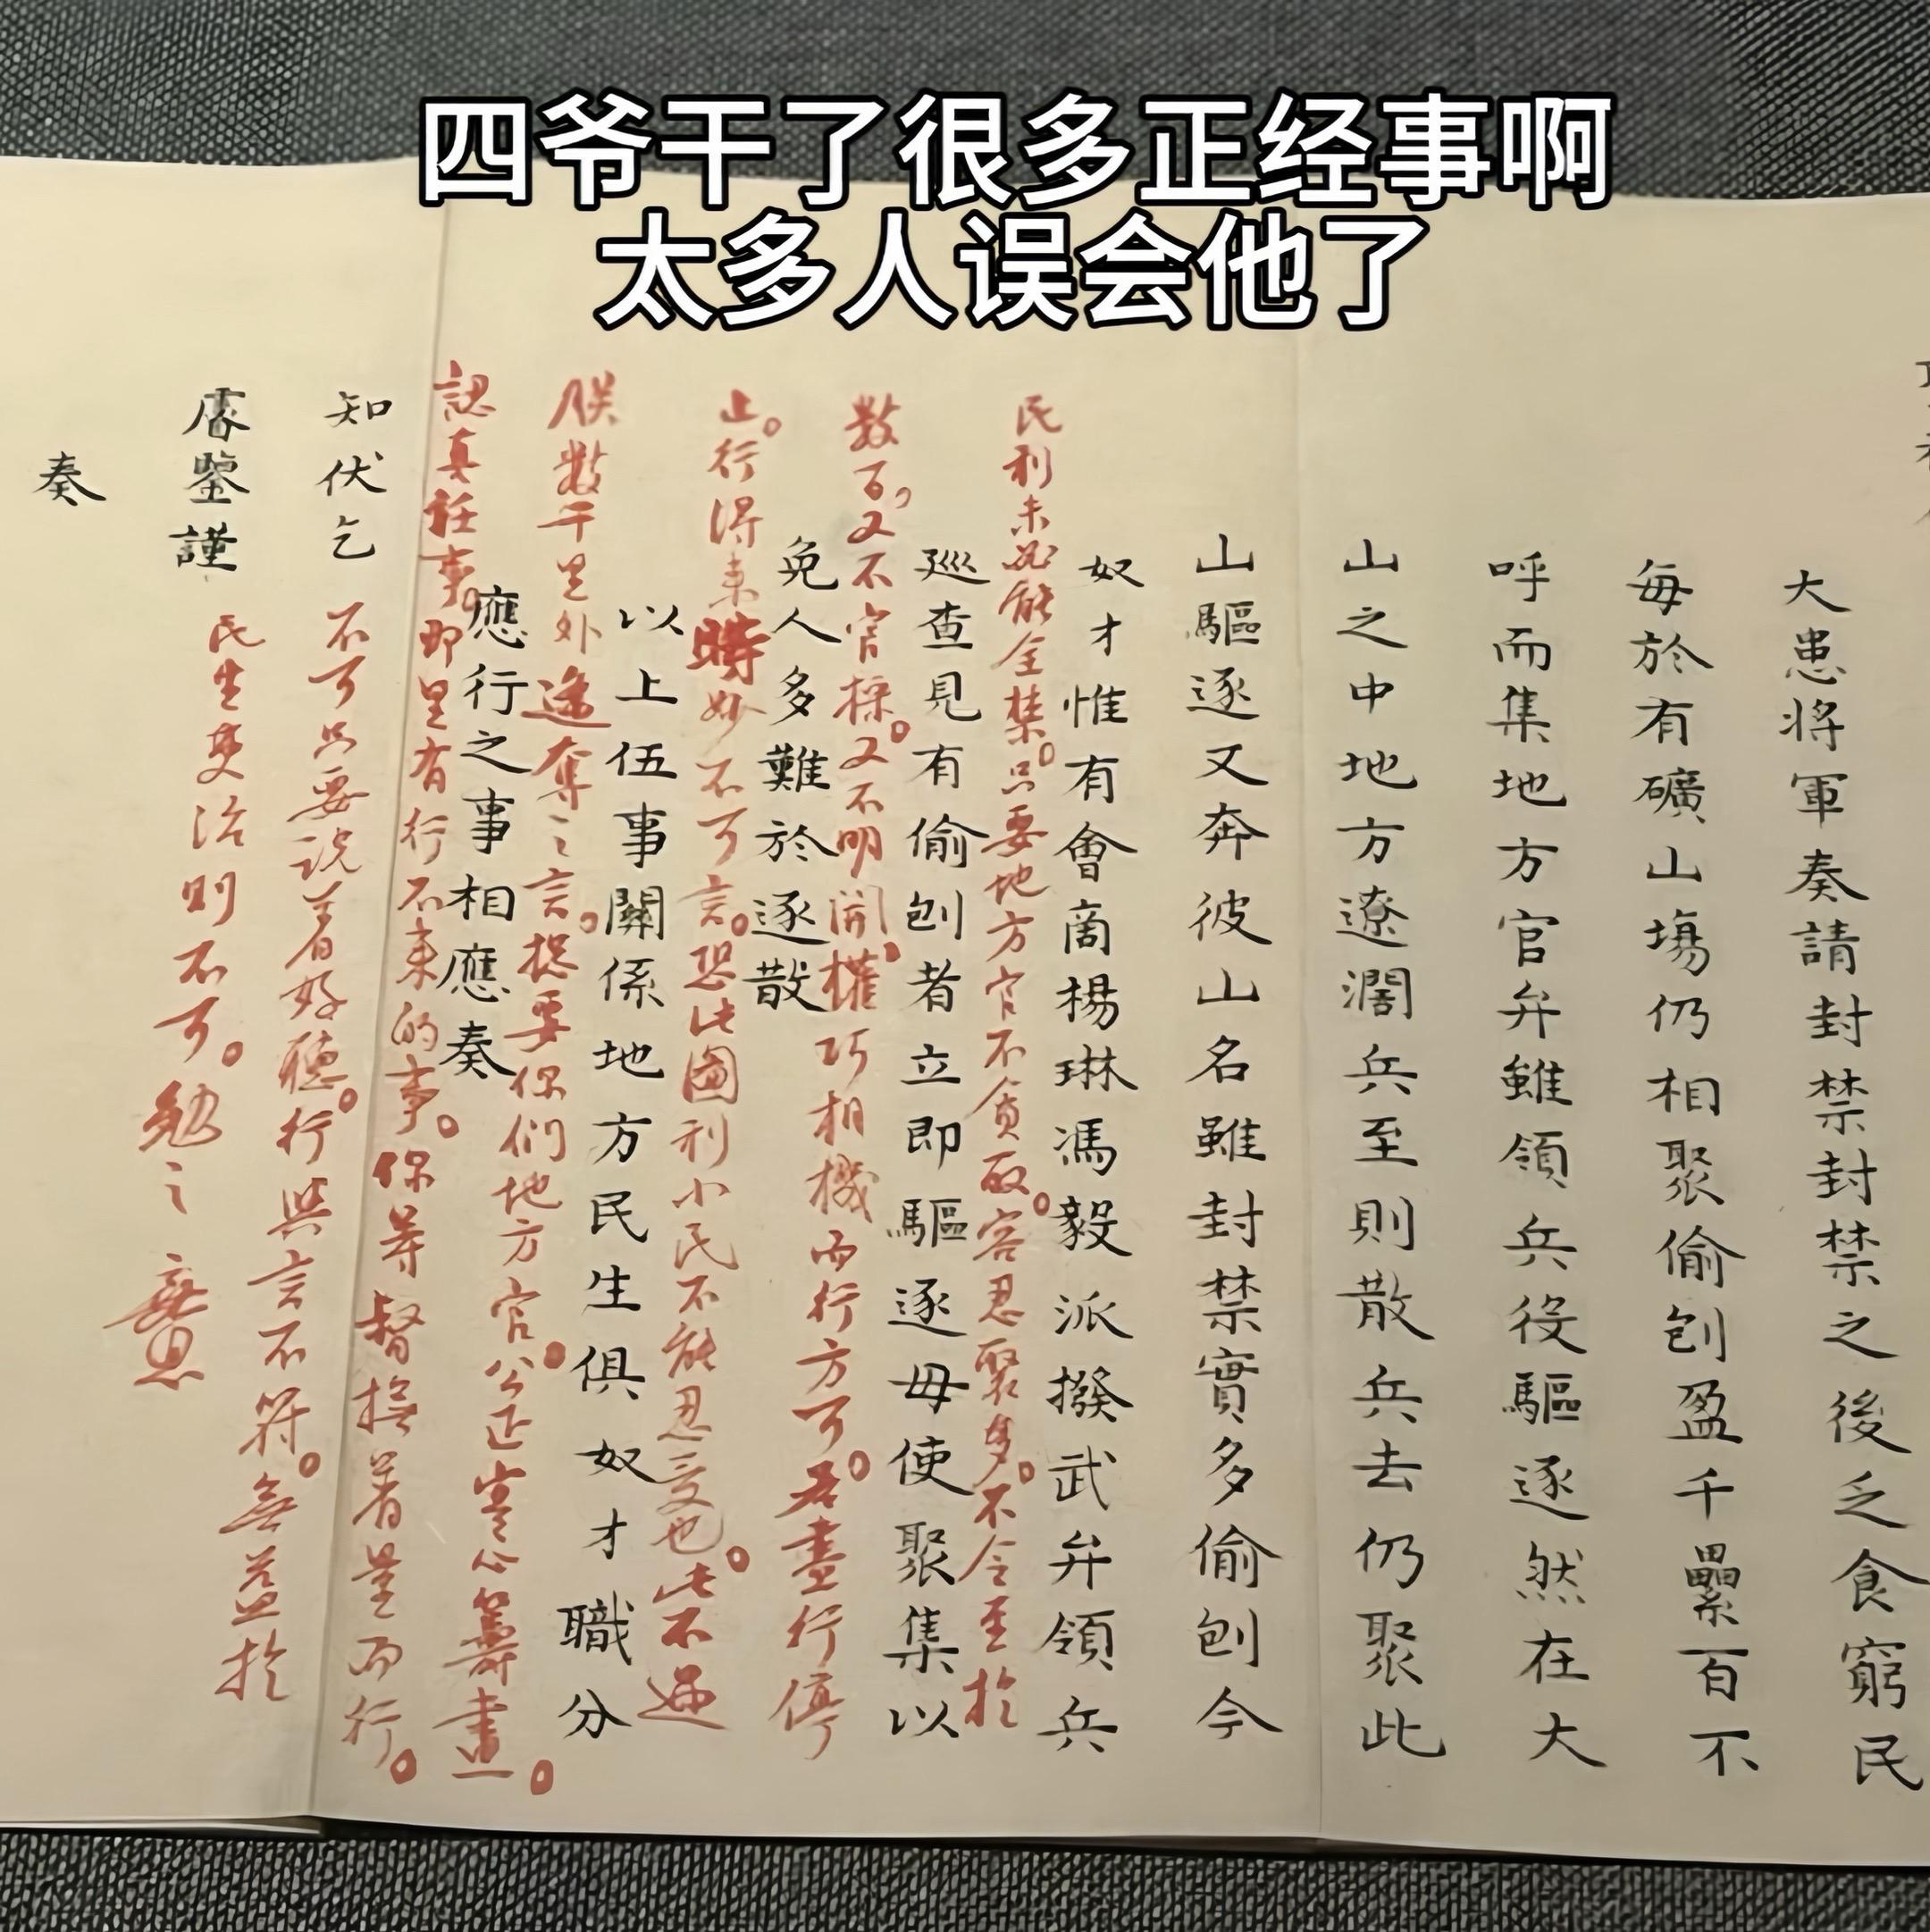 四爷干了很多正经事啊
太多人误会他了
大患将軍奏請封禁封禁之後乏食窮民
每於有礦山場仍相聚偷刨盈千累百不
呼而集地方官弁雖領兵役驅逐然在大
山之中地方遼濶兵至則散兵去仍聚此
山驅逐又奔彼山名雖封禁實多偷刨今
奴才惟有會商楊琳馮毅派撥武弁領兵
民利未必能全禁。只要地方官不貪取。容忍聚多。不令至於
巡查見有偷刨者立即驅逐毋使聚集以
數百，又不官採。又不明開，權巧相機而行方可。若盡行停
免人多難於逐散
止。行得來時妙不可言。恐此圖利小民不能忍受也。此不過
以上伍事關係地方民生俱奴才職分
朕數千里外遙奪之言。總要你們地方官。公正寔心籌畫。
應行之事相應奏
認真任事。即里有行不来的事。你等督撫着量而行。
知伏乞
不可只要說着好聽。行與言不符。無益於
睿鑒謹
民生吏治則不可。勉之
奏